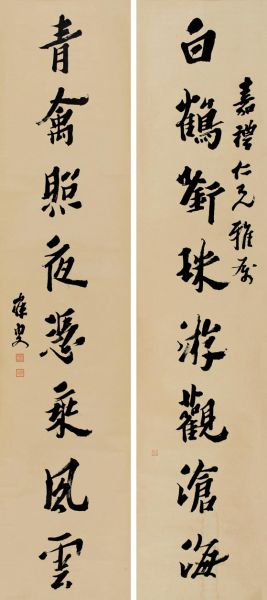 嘉禮仁兄雅屬
白鶴銜珠游觀滄海
青禽照夜憑乘風雲